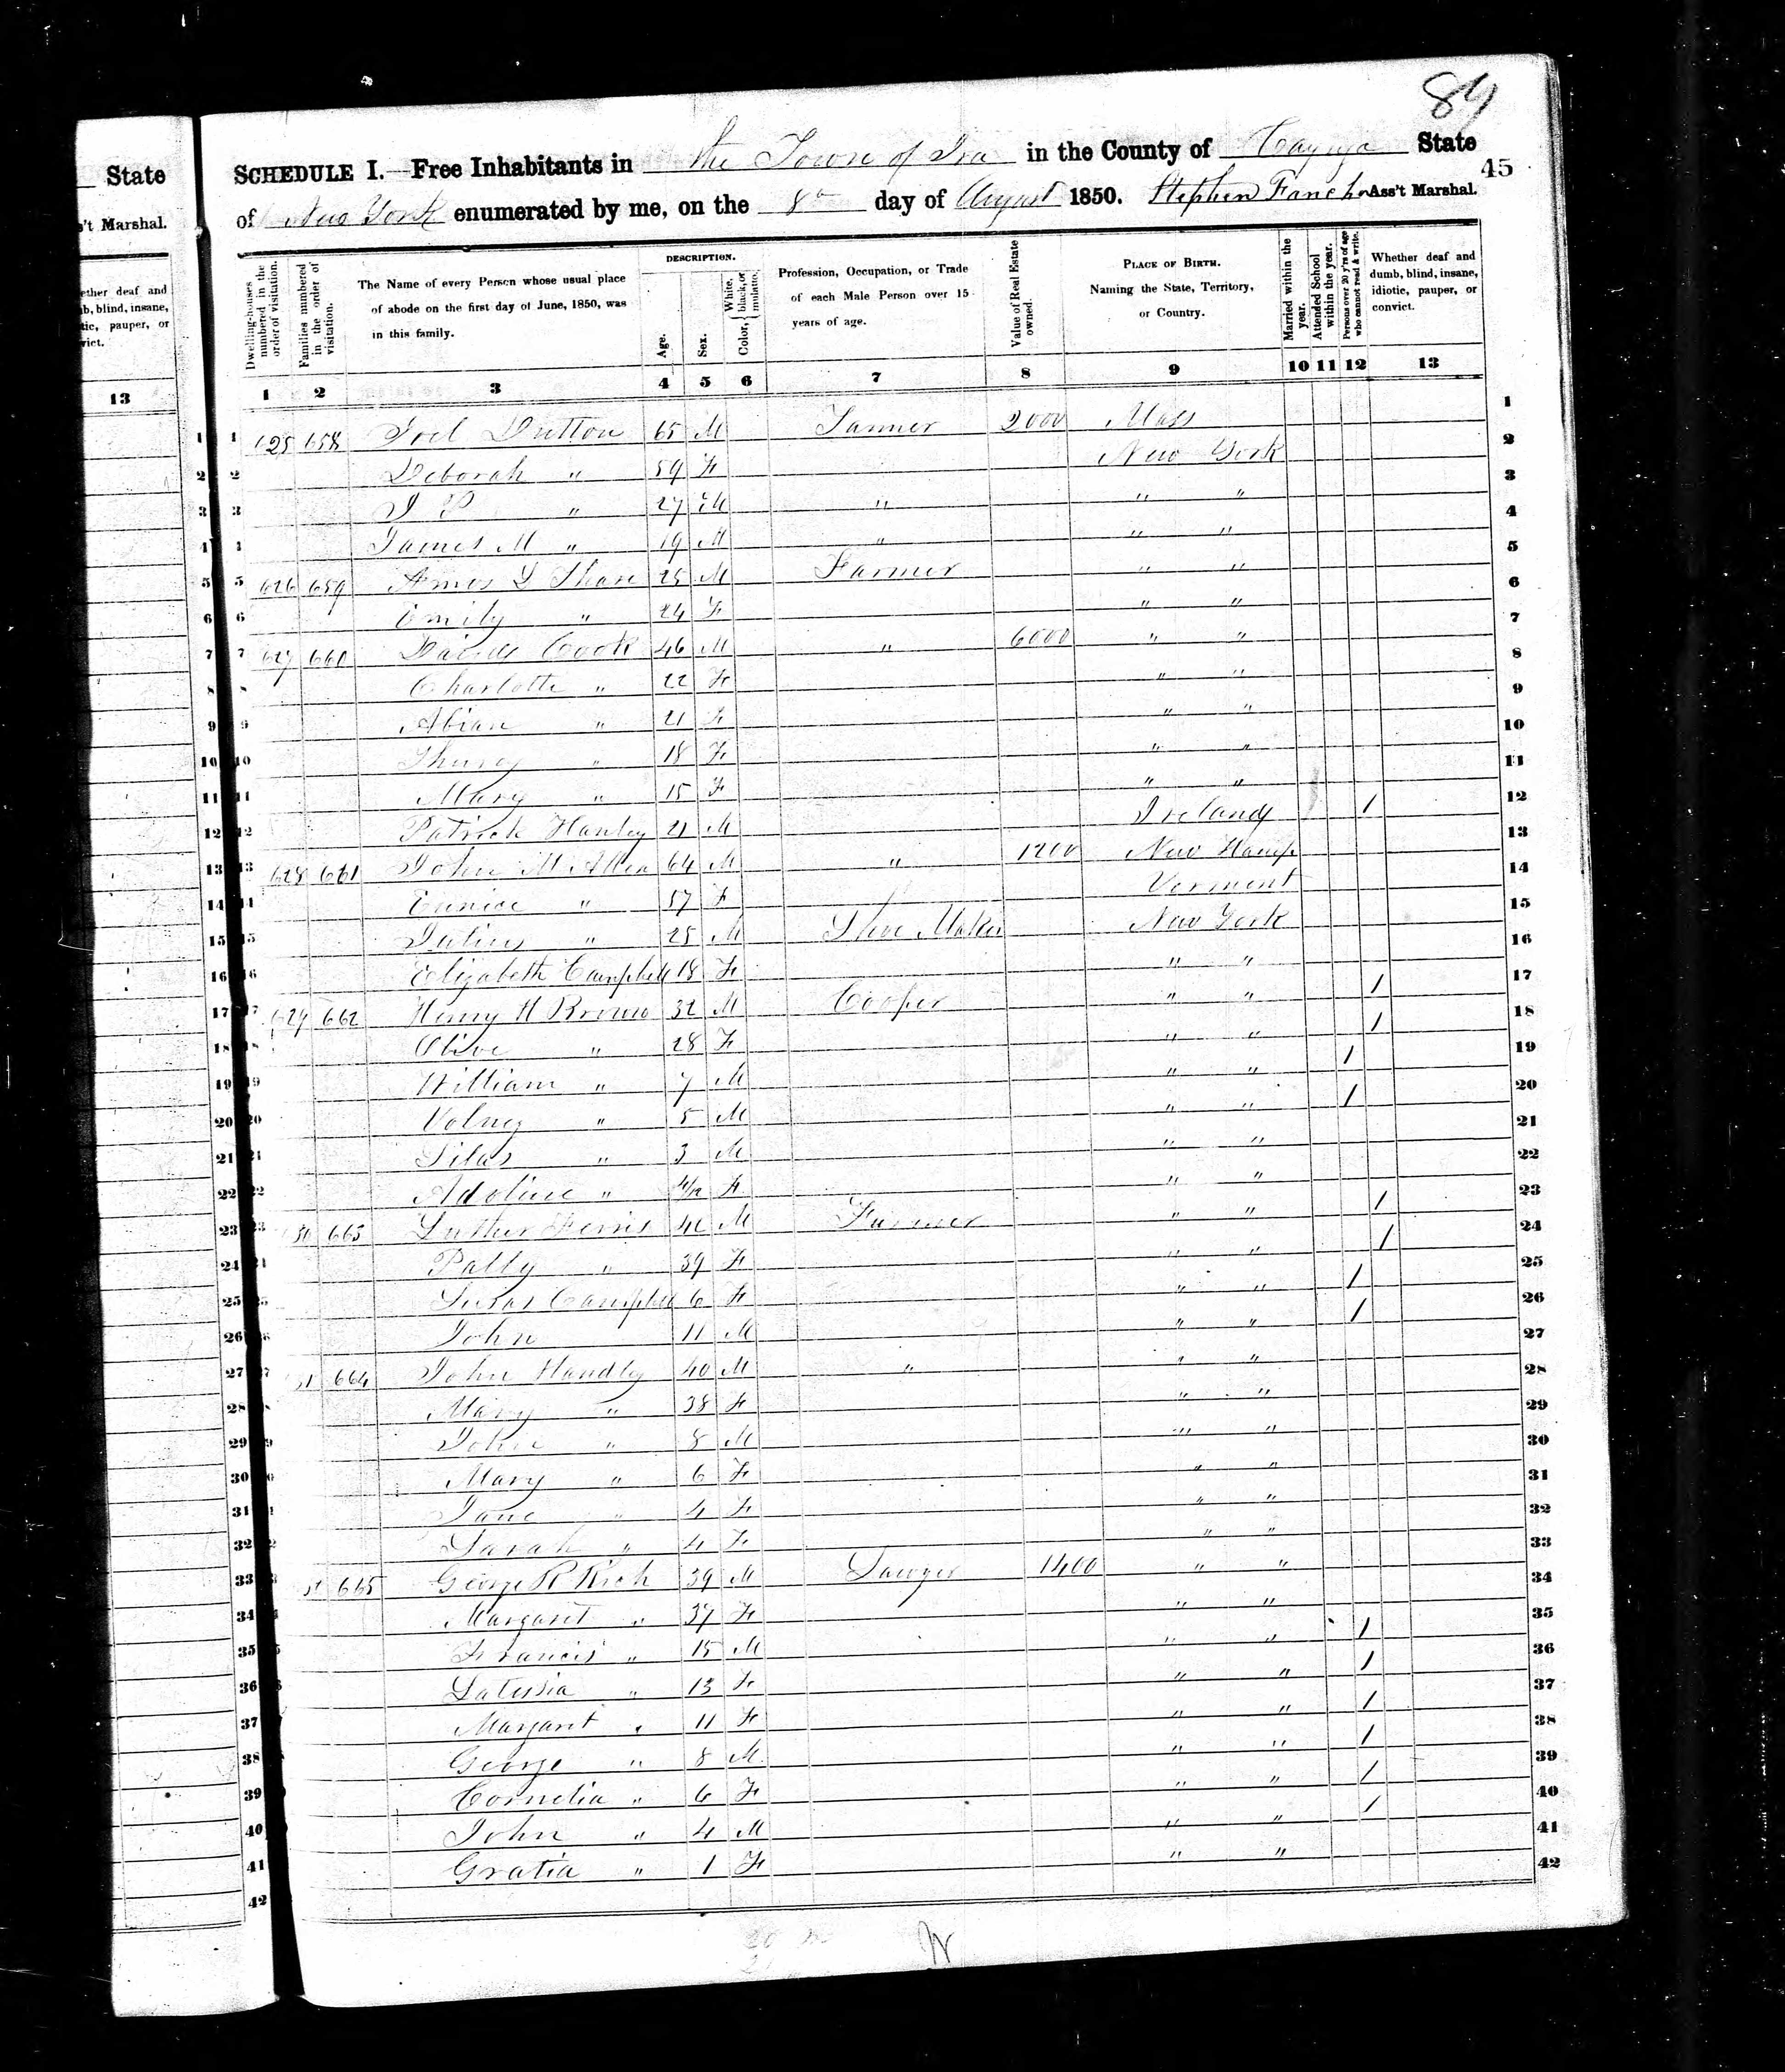 89
State
SCHEDULE I.—Free Inhabitants in the Town of Ira in the County of Cayuga State
45
of New York enumerated by me, on the 8th day of August 1850. Stephen Fancher Ass't Marshal.
's't Marshal.
Dwelling-houses numbered in the order of visitation.
Families numbered in the order of visitation.
The Name of every Person whose usual place of abode on the first day of June, 1850, was in this family.
DESCRIPTION.
Age.
Sex.
Color, { White, black, or mulatto.
Profession, Occupation, or Trade of each Male Person over 15 years of age.
Value of Real Estate owned.
PLACE OF BIRTH. Naming the State, Territory, or Country.
Married within the year.
Attended School within the year.
Persons over 20 y'rs of age who cannot read & write.
Whether deaf and dumb, blind, insane, idiotic, pauper, or convict.
1 2 3 4 5 6 7 8 9 10 11 12 13
1 625 658 Joel Dutton 65 M Tanner 2000 Mass 1
2 Deborah " 59 F New York 2
3 " 27 M " " " 3
4 James M " 19 M " " " 4
5 626 659 Amos 25 M Farmer " " 5
6 Emily " 24 F " " 6
7 627 660 Cook 46 M " 6000 " " 7
8 Charlotte " 22 F " " 8
9 " 21 F " " 9
10 " 18 F " " 10
11 Mary " 15 F " " 11
12 Patrick Hanley 21 M Ireland / 12
13 628 661 John M Allen 64 M " 1200 New Hamp 13
14 Eunice " 57 F Vermont 14
15 Julius " 25 M Shoe Maker New York 15
16 Elizabeth Campbell 18 F " " 16
17 629 662 Henry H Brown 32 M Cooper " " / 17
18 Olive " 28 F " " / 18
19 William " 7 M " " / 19
20 Volney " 5 M " " / 20
21 Silas " 3 M " " 21
22 Adoline " 4/12 F " " 22
23 30 663 Luther Ferris M Farmer " " / 23
24 Polly " 39 F " " / 24
25 Campbell 6 F " " / 25
26 John 11 M " " / 26
27 31 664 John Handley 40 M " " " 27
28 Mary " 38 F " " 28
29 John " 8 M " " 29
30 Mary " 6 F " " 30
31 Jane " 4 F " " 31
32 Sarah " 4 F " " 32
33 665 George R Rich 39 M Sawyer 1400 " " 33
34 Margaret " 37 F " " 34
35 Francis " 15 M " " / 35
36 Latusia " 13 F " " / 36
37 Margaret " 11 F " / 37
38 George " 8 M " " / 38
39 Cornelia " 6 F " " / 39
40 John " 4 M " " / 40
41 Gratia " 1 F " " 41
42 42